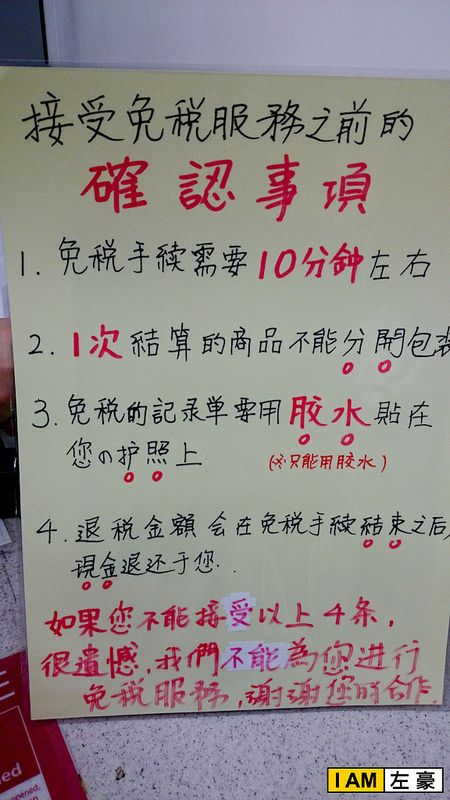 接受免税服務之前的
確認事項
1. 免税手續需要10分鈡左右
2. 1次結算的商品不能分開包装
3. 免税的記录单要用胶水貼在
您の护照上
(※只能用胶水)
4. 退税金額会在免税手續結束之后,
現金退还于您..
如果您不能接受以上4条,
很遺憾,我們不能為您进行
免税服務,謝謝您的合作.
I AM 左豪